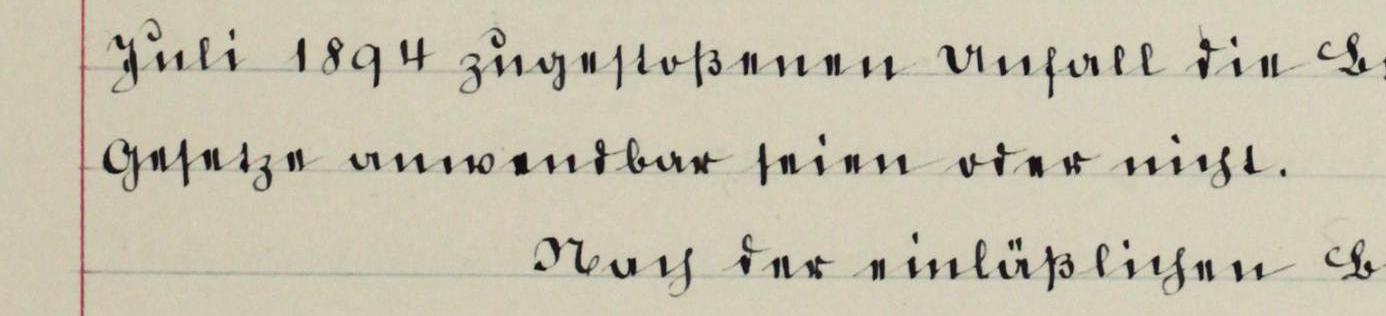 Juli 1894 zugestoßenen Unfall die
Gesetze anwendbar seien oder nicht.
Nach der einläßlichen